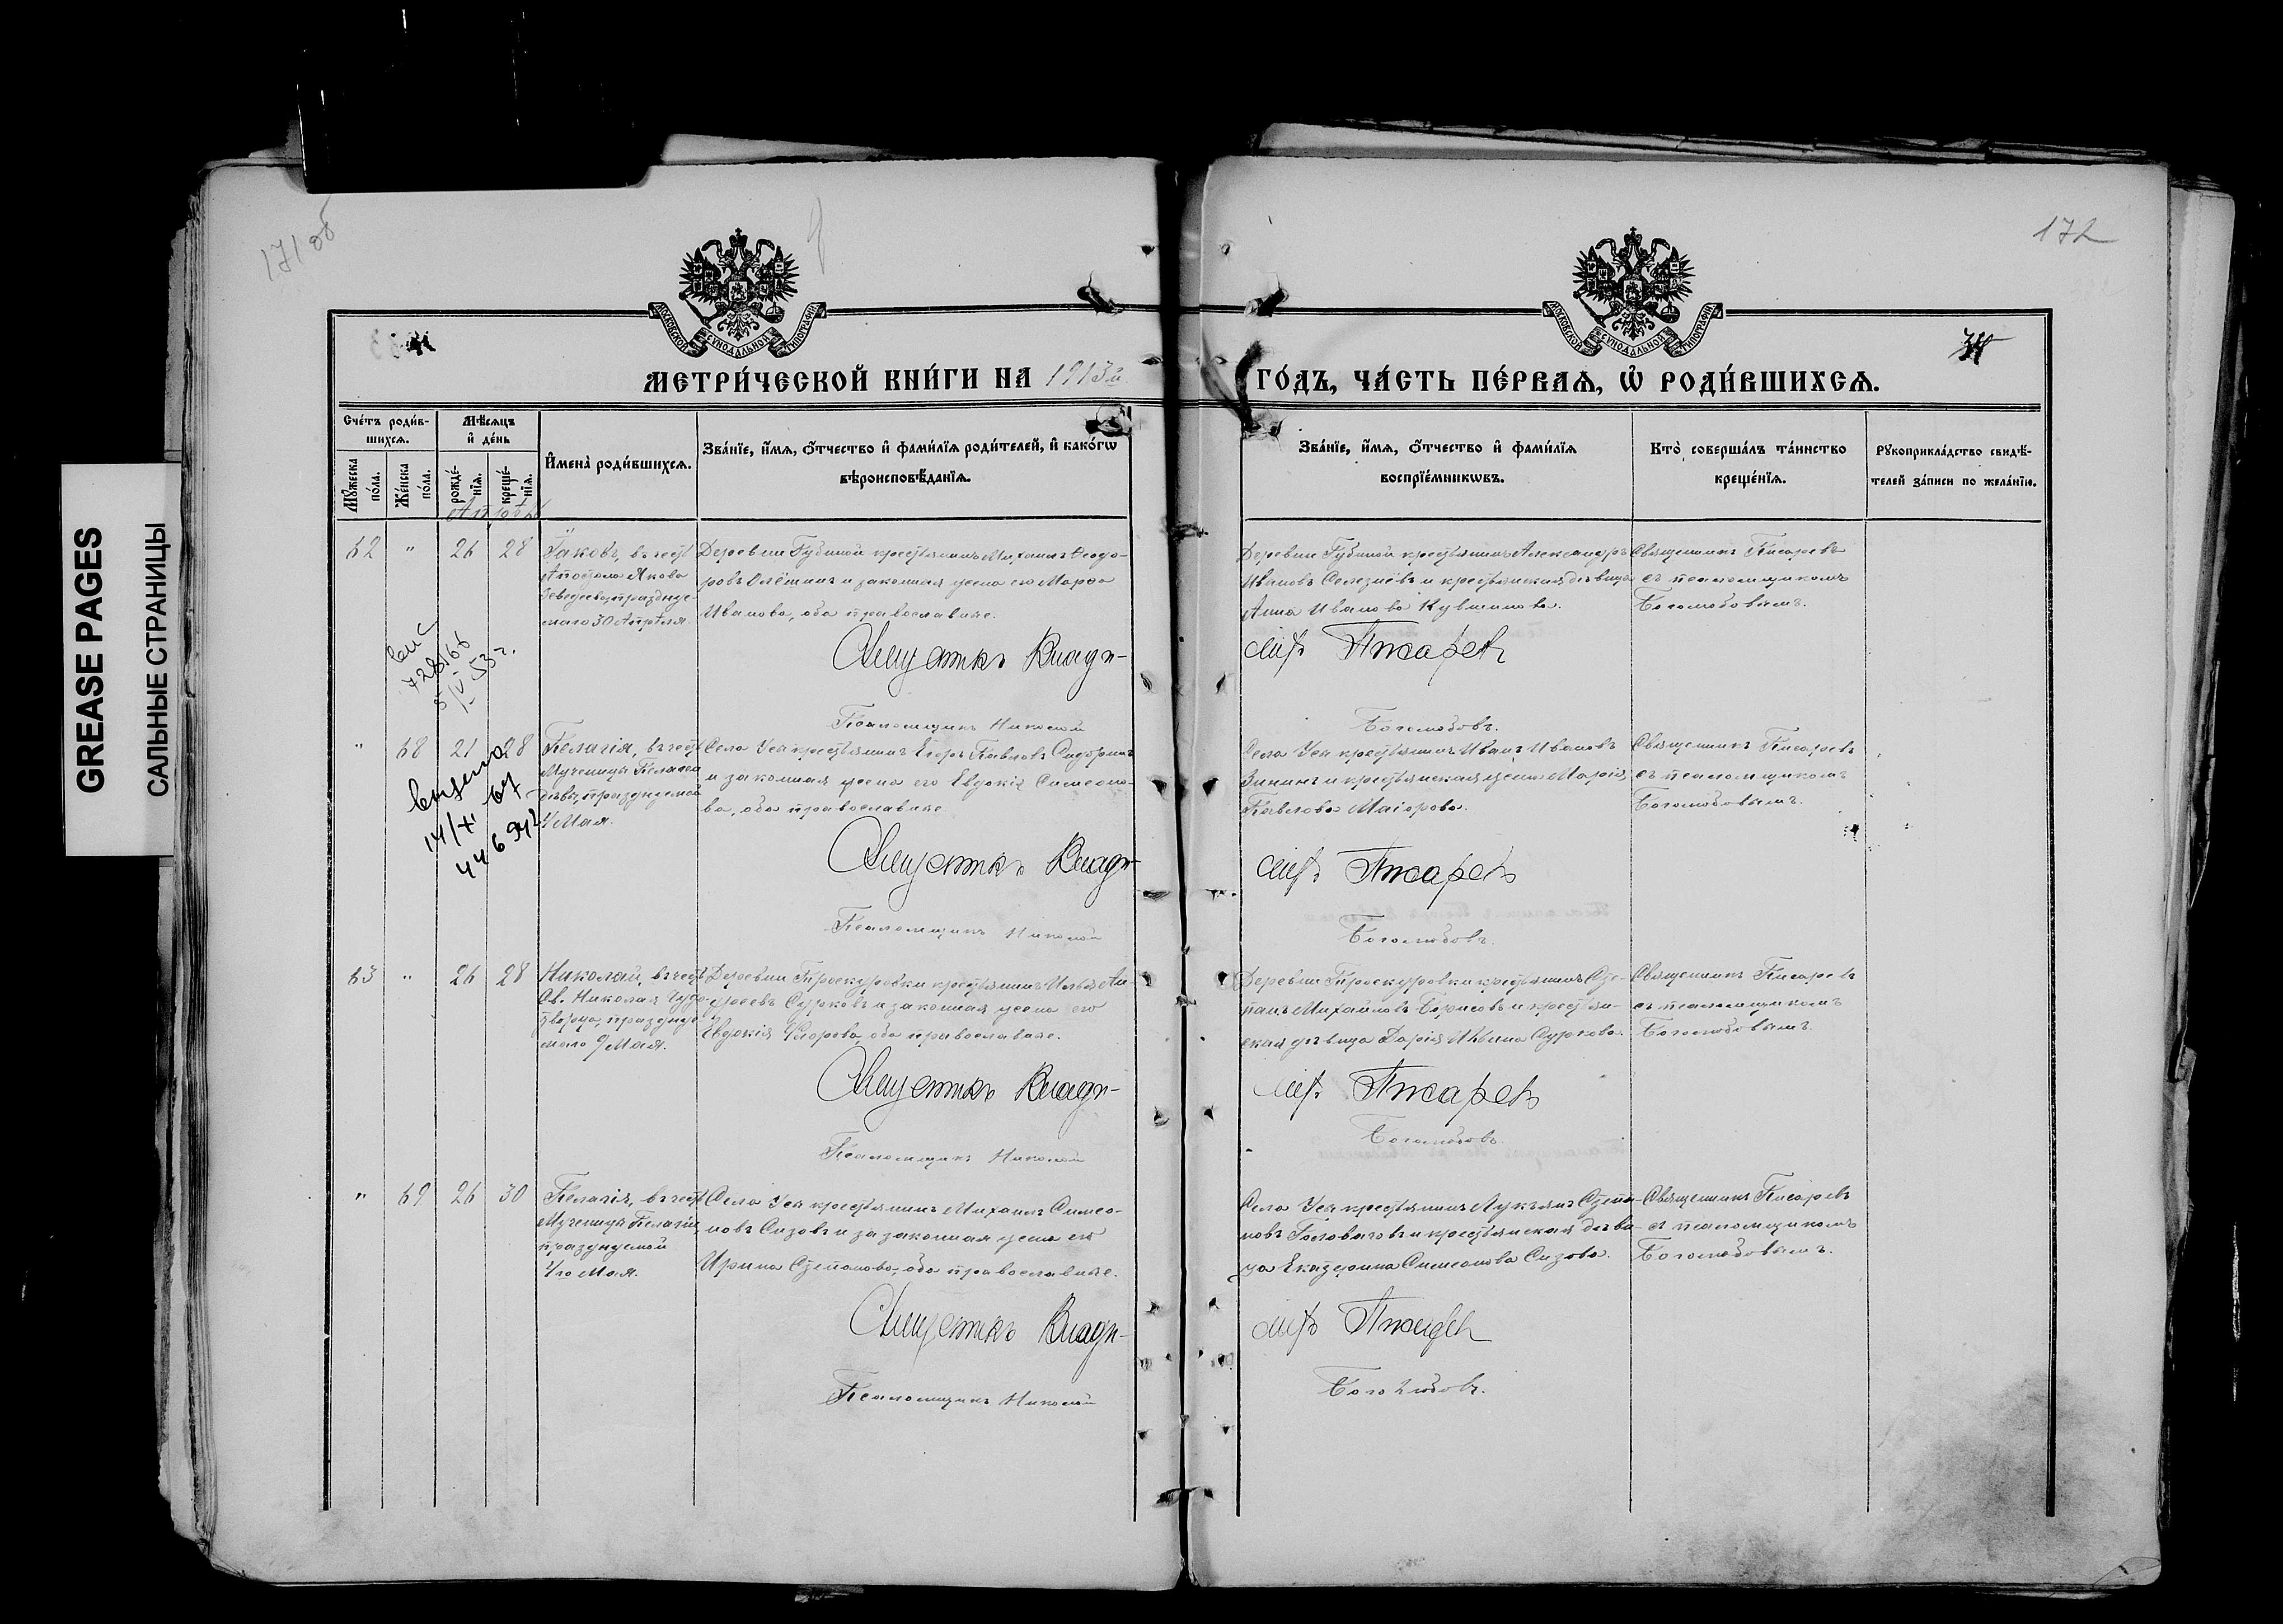 GREASE PAGES
САЛЬНЫЕ СТРАНИЦЫ
171 об
172
МОСКОВСКОЙ СѴНОДАЛЬНОЙ ТИПОГРАФІИ
МОСКОВСКОЙ СѴНОДАЛЬНОЙ ТИПОГРАФІИ
МЕТРИ́ЧЕСКОЙ КНИ́ГИ НА 1913й
ГО́ДЪ, ЧА́СТЬ ПЕ́РВАѦ, Ѡ҆ РОДИ́ВШИХСѦ.
Сче́тъ роди́в-
шихсѧ.
Мѣ́сѧцъ
и҆ де́нь
Мꙋ́жеска
по́ла.
Же́нска
по́ла.
рожде́-
нїѧ.
креще́-
нїѧ.
И҆мена̀ роди́вшихсѧ.
Зва́нїе, и҆́мѧ, ѻ҆́тчество и҆ фами́лїѧ роди́телей, и҆ како́гѡ
вѣроисповѣ́данїѧ.
Зва́нїе, и҆́мѧ, ѻ҆́тчество и҆ фами́лїѧ
воспрїе́мникѡвъ.
Кто̀ соверша́лъ та́инство
креще́нїѧ.
Рꙋкоприкла́дство свидѣ́-
телей за́писи по жела́нїю.
Апрѣль
62 " 26 28
Іаковъ, въ честь
Апостола Іакова
Зеведеева, праздну-
емаго 30 Апрѣля.
Деревни Губиной крестьянинъ Михаилъ Ѳеодо-
ровъ Олёшинъ и законная жена его Марѳа
Иванова, оба православные.
Священникъ Влади-
Псаломщикъ Николай
Деревни Губиной крестьянинъ Александръ
Ивановъ Селезнёвъ и крестьянская дѣвица
Анна Иванова Кувшинова.
миръ Писаревъ
Боголюбовъ.
Священникъ Писаревъ
съ псаломщикомъ
Боголюбовымъ.
728166
5/V 53 г.
" 68 21 28
Пелагія, въ честь
Мученицы Пелагеи
дѣвы, празднуемой
4 Мая.
Села Уса крестьянинъ Егоръ Павловъ Сидоринъ
и законная жена его Евдокія Симеоно-
ва, оба православные.
Священникъ Влади-
Псаломщикъ Николай
Села Уса крестьянинъ Иванъ Ивановъ
Зининъ и крестьянская жена Марія
Павлова Маіорова.
миръ Писаревъ
Боголюбовъ.
Священникъ Писаревъ
съ псаломщикомъ
Боголюбовымъ.
14/XI 67
446942
63 " 26 28
Николай, въ честь
Св. Николая Чудо-
творца, праздну-
емаго 9 Мая.
Деревни Проскуровки крестьянинъ Илья Ан-
дреевъ Сурковъ и законная жена его
Евдокія Ѳлорова, оба православные.
Священникъ Влади-
Псаломщикъ Николай
Деревни Проскуровки крестьянинъ Сте-
панъ Михайловъ Борисовъ и крестьян-
ская дѣвица Дарія Ильина Суркова.
миръ Писаревъ
Боголюбовъ.
Священникъ Писаревъ
съ псаломщикомъ
Боголюбовымъ.
" 69 26 30
Пелагія, въ честь
Мученицы Пелагіи,
празднуемой
4го Мая.
Села Уса крестьянинъ Михаилъ Симео-
новъ Сизовъ и за законная жена его
Ирина Степанова, оба православные.
Священникъ Влади-
Псаломщикъ Николай
Села Уса крестьянинъ Лукъянъ Степа-
новъ и крестьянская дѣви-
ца Екатерина Симеонова Сизова.
миръ Писаревъ
Боголюбовъ.
Священникъ Писаревъ
съ псаломщикомъ
Боголюбовымъ.